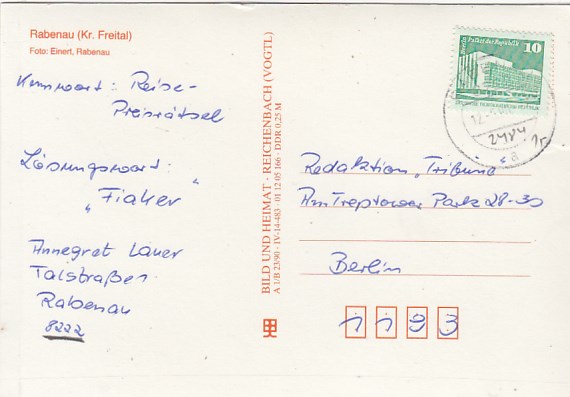 Rabenau (Kr. Freital)
Foto: Einert, Rabenau
Kennwort: Reise-
Preisrätsel
Lösungswort:
„Fiaker"
Annegret Lauer
Talstraße
Rabenau
8222
BILD UND HEIMAT · REICHENBACH (VOGTL)
A 1/B 23/90 · IV-14-483 · 01 12 05 166 · DDR 0,25 M
Palast der Republik
10
Redaktion „Tribüne"
Am Treptower Park 28-30
Berlin
1193